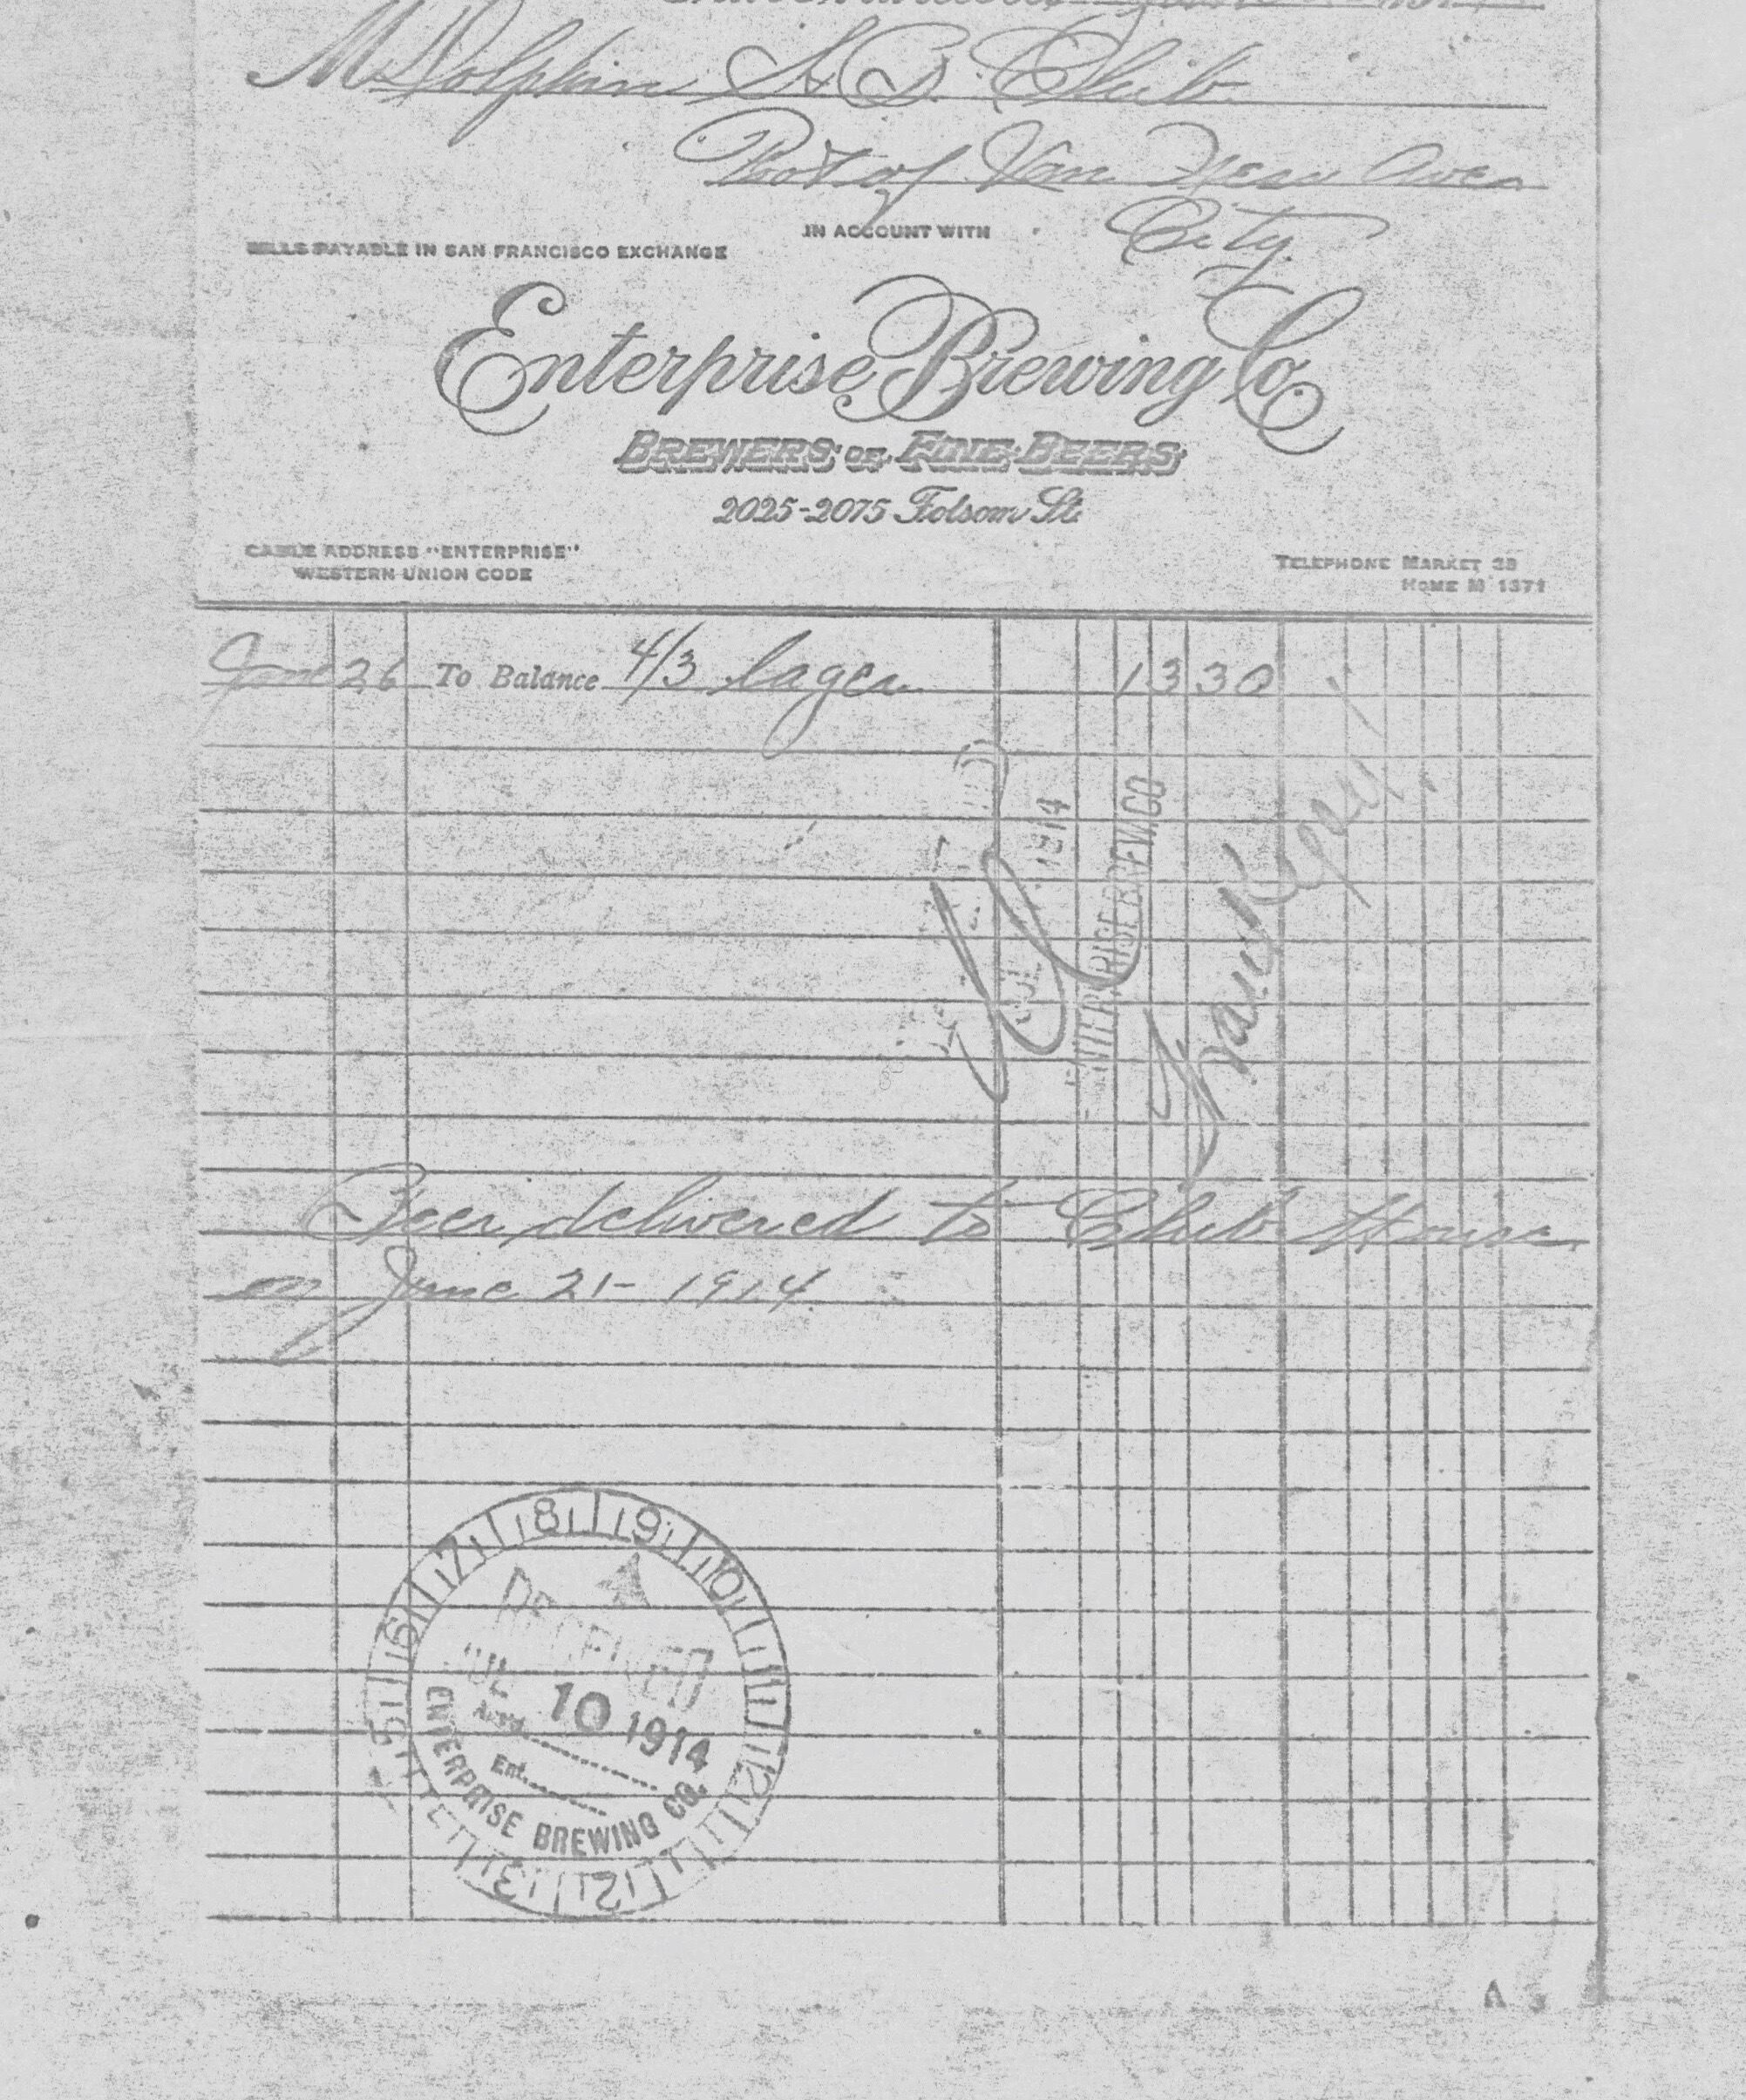 M Dolphin S. B. Club
Foot of Van Ness Aven
City
IN ACCOUNT WITH
BILLS PAYABLE IN SAN FRANCISCO EXCHANGE
Enterprise Brewing Co.
BREWERS OF FINE BEERS
2025-2075 Folsom St.
CABLE ADDRESS "ENTERPRISE"
WESTERN UNION CODE
TELEPHONE MARKET 28
HOME M 1371
June 26 To Balance 4/3 lager 13 30
JUL 1914
ENTERPRISE BREW. CO
Frank
Beer delivered to Club House
on June 21 - 1914
5 6 7 8 9 10 11 12 1 2 3
RECEIVED
JUL 10 1914
Ent.
ENTERPRISE BREWING CO.